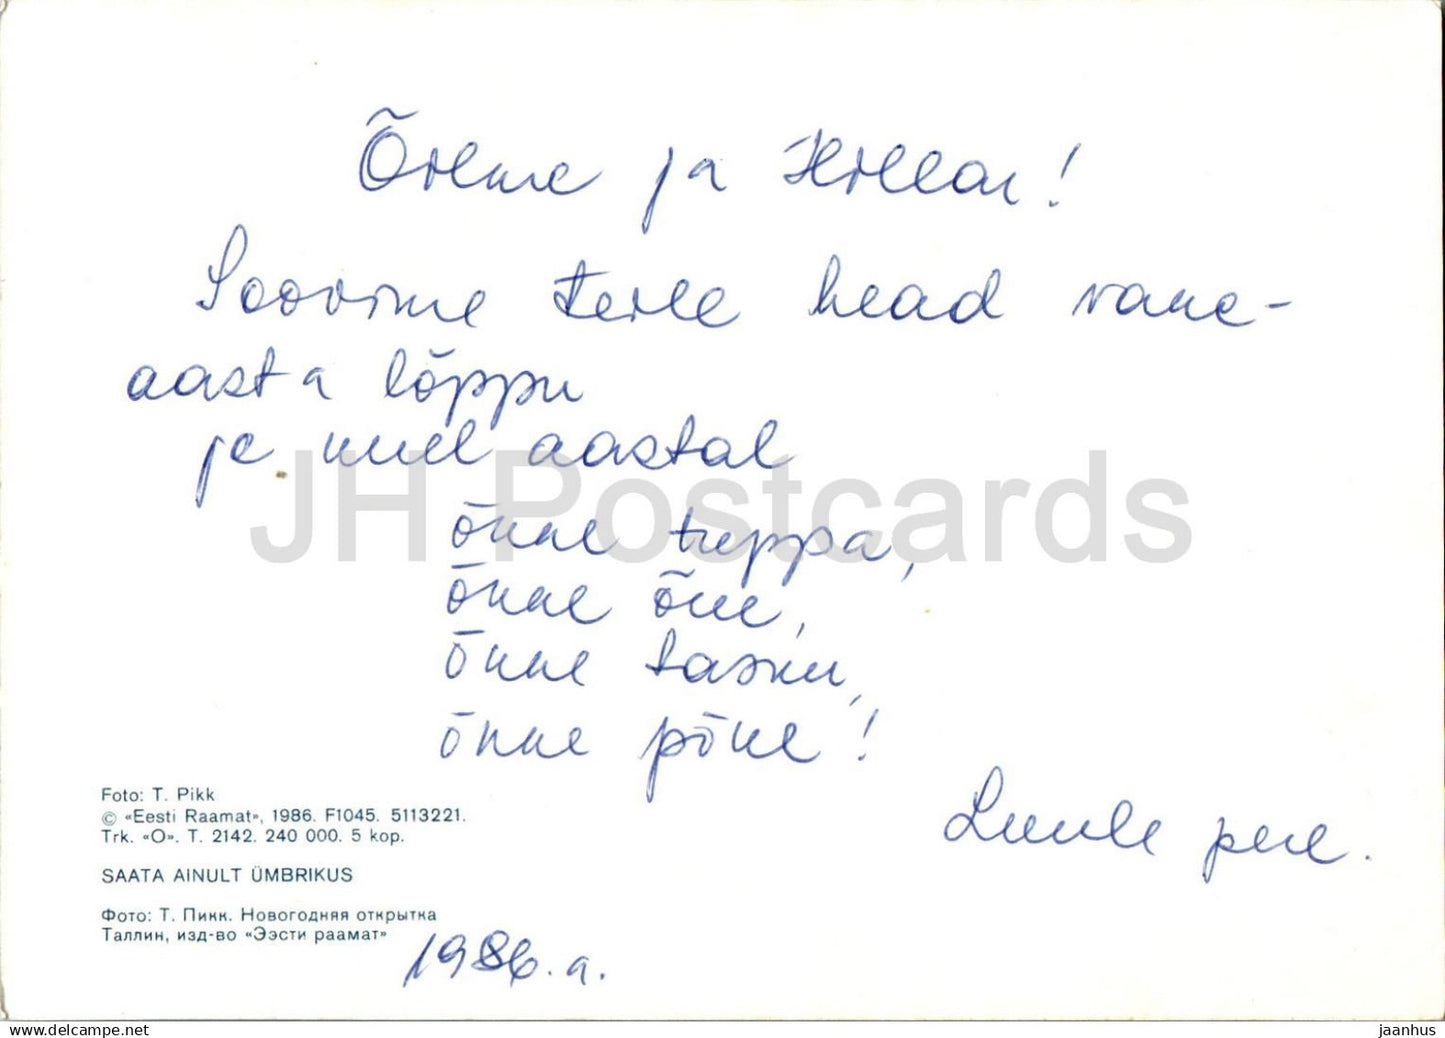 Õilme ja Hillar!
Soovime teile head vana-
aasta lõppu
ja uuel aastal
õnne tuppa,
õnne õue,
õnne tasku,
õnne põue!
Luule pere.
Foto: T. Pikk
© «Eesti Raamat», 1986. F1045. 5113221.
Trk. «O». T. 2142. 240 000. 5 kop.
SAATA AINULT ÜMBRIKUS
Фото: Т. Пикк. Новогодняя открытка
Таллин, изд-во «Ээсти раамат»
1986. a.
JH Postcards
jaanhus.delcampe.net